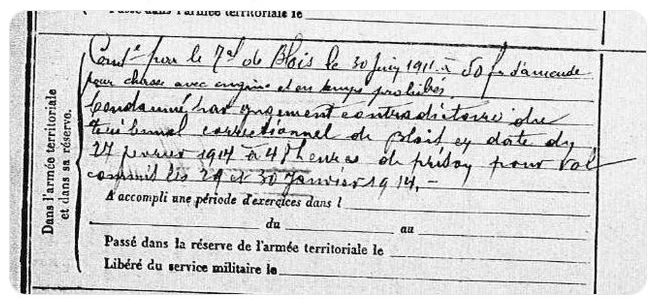 Passé dans l'armée territoriale le
Dans l'armée territoriale
et dans sa réserve.
Cond^é par le T^al de Blois le 30 Juin 1911 à 50 fr d'amende
pour chasse avec engins et en temps prohibés.
Condamné par jugement contradictoire du
tribunal correctionnel de Blois en date du
27 février 1914 à 48 heures de prison pour vol
commis les 29 et 30 Janvier 1914.-
A accompli une période d'exercices dans l
du au
Passé dans la réserve de l'armée territoriale le
Libéré du service militaire le